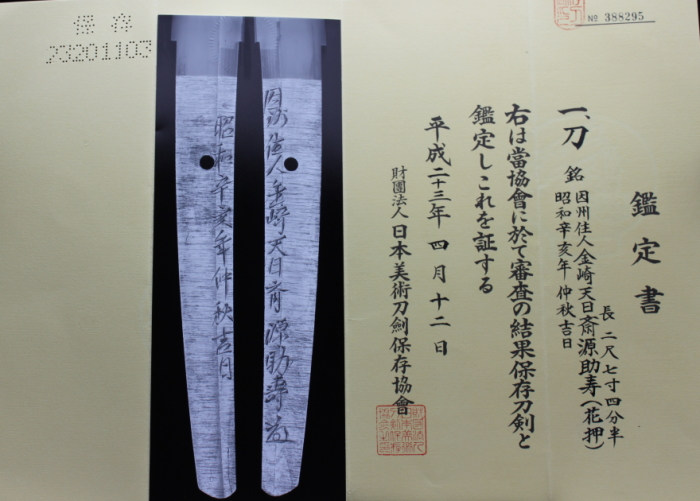 鑑定書
一、刀 銘 因州住人金崎天日斎源助寿(花押)
昭和辛亥年 仲秋吉日
長 二尺七寸四分半
右は當協會に於て審査の結果保存刀剣と
鑑定しこれを証する
平成二十三年 四月十二日
財團法人 日本美術刀劍保存協會
№ 388295
保存
23201103
因州住人金崎天日斎源助寿
昭和辛亥年仲秋吉日